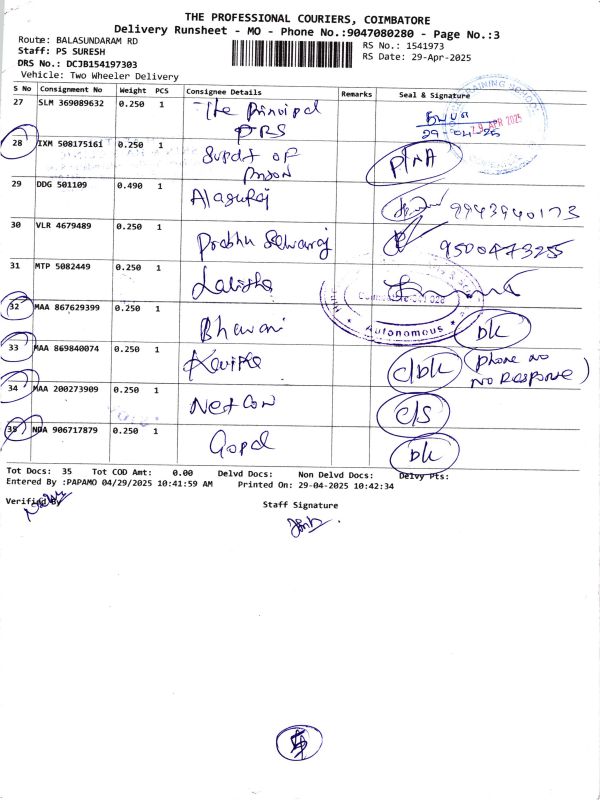 THE PROFESSIONAL COURIERS, COIMBATORE
Delivery Runsheet - MO - Phone No.:9047080280 - Page No.:3
Route: BALASUNDARAM RD
RS No.: 1541973
Staff: PS SURESH
RS Date: 29-Apr-2025
DRS No.: DCJB154197303
Vehicle: Two Wheeler Delivery
S No Consignment No Weight PCS Consignee Details Remarks Seal & Signature
27 SLM 369089632 0.250 1 The Principal
PRS
29 APR 2025
29-04-25
28 IXM 508175161 0.250 1 Supdt of
Prison
PNA
29 DDG 501109 0.490 1 Alaguraj 9943940173
30 VLR 4679489 0.250 1 Prabhu Selvaraj 9500473255
31 MTP 5082449 0.250 1 Lalitha
Autonomous
32 MAA 867629399 0.250 1 Bhavani dk
33 MAA 869840074 0.250 1 Kavitha c/dk (phone no
no Response)
34 MAA 200273909 0.250 1 Netcon c/s
35 NDA 906717879 0.250 1 Gopal dk
Tot Docs: 35 Tot COD Amt: 0.00 Delvd Docs: Non Delvd Docs: Delvy Pts:
Entered By :PAPAMO 04/29/2025 10:41:59 AM Printed On: 29-04-2025 10:42:34
Verified By
Staff Signature